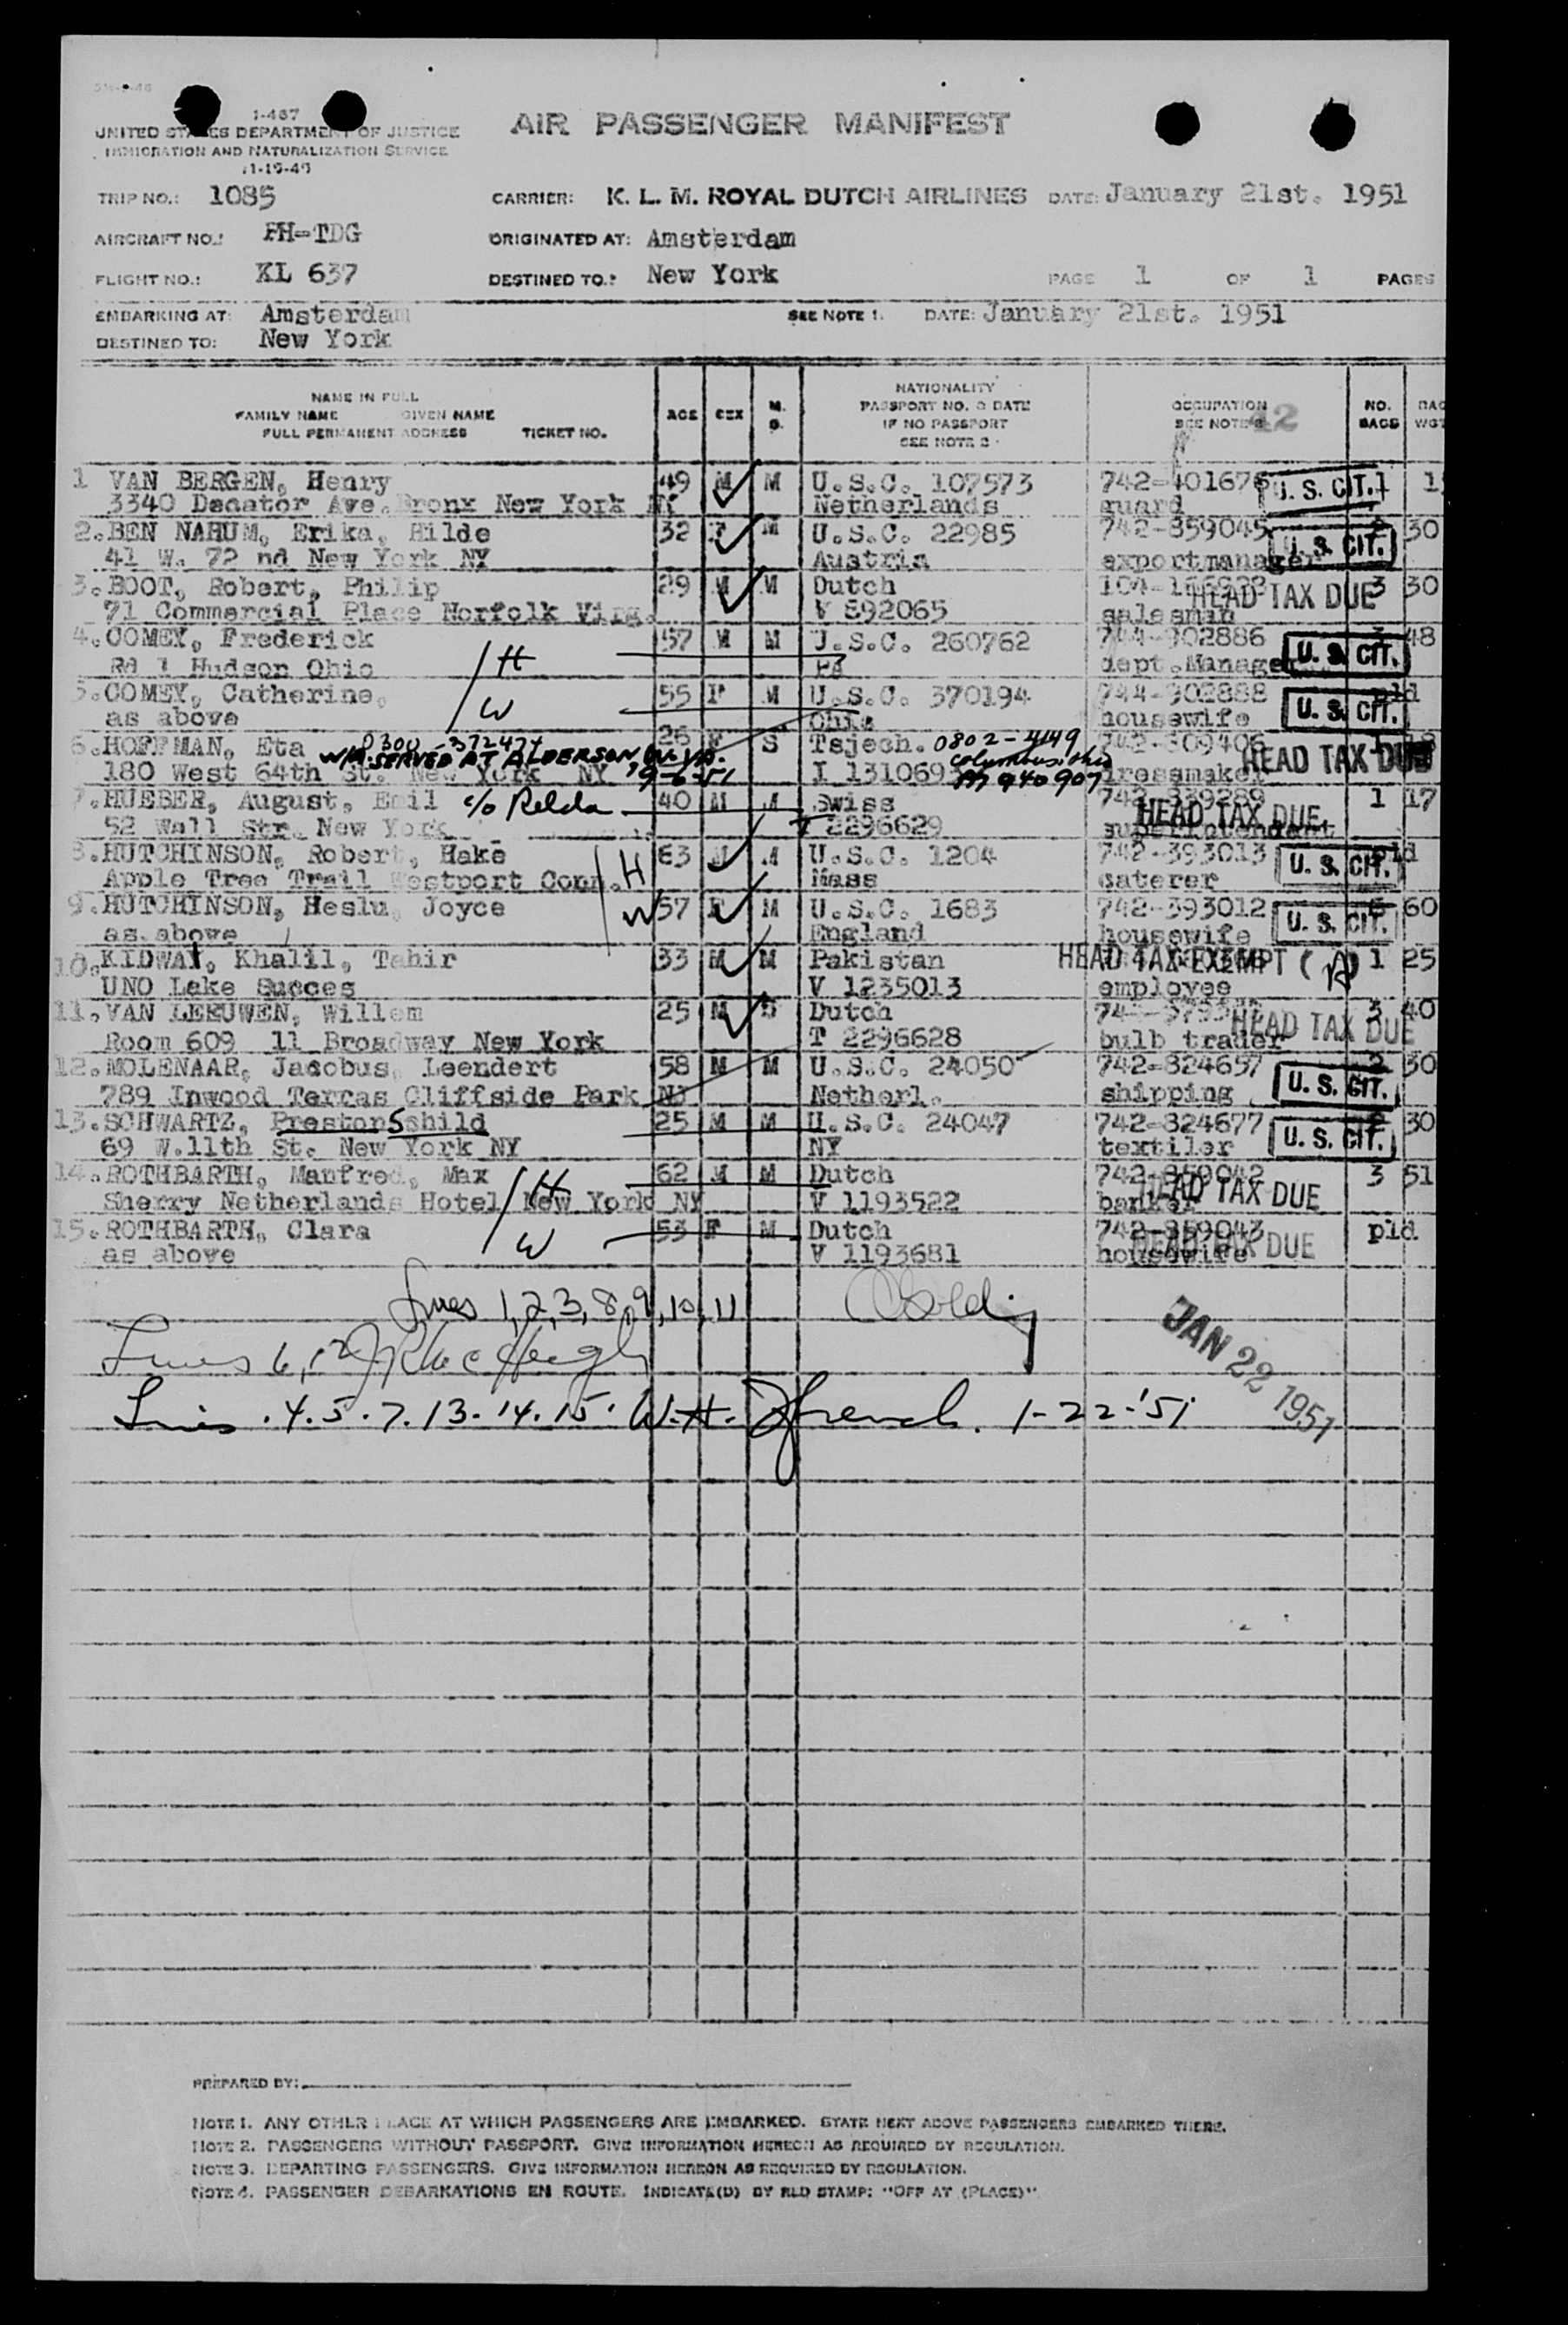 1-467
UNITED STATES DEPARTMENT OF JUSTICE
IMMIGRATION AND NATURALIZATION SERVICE
AIR PASSENGER MANIFEST
TRIP NO.: 1085 CARRIER: K. L. M. ROYAL DUTCH AIRLINES DATE: January 21st. 1951
AIRCRAFT NO.: PH-TDG ORIGINATED AT: Amsterdam
FLIGHT NO.: KL 637 DESTINED TO.: New York PAGE 1 OF 1 PAGES
EMBARKING AT: Amsterdam SEE NOTE 1. DATE: January 21st. 1951
DESTINED TO: New York
NAME IN FULL
FAMILY NAME GIVEN NAME
FULL PERMANENT ADDRESS TICKET NO.
AGE SEX M. S.
NATIONALITY
PASSPORT NO. & DATE
IF NO PASSPORT
SEE NOTE 2
OCCUPATION
SEE NOTE
42
NO. BAGS
BAG WGT
1 VAN BERGEN, Henry 49 M M U.S.C. 107573 742-401676 U. S. CIT. 1
3340 Decator Ave. Bronx New York NY Netherlands guard
2. BEN NAHUM, Erika, Hilde 32 F M U.S.C. 22985 742-859045 U. S. CIT. 30
41 W. 72 nd New York NY Austria exportmanager
3. BOOT, Robert, Philip 29 M M Dutch HEAD TAX DUE 3 30
71 Commercial Place Norfolk Virg. V 892065 salesman
4. COMEY, Frederick 57 M M U.S.C. 260762 744-902886 U. S. CIT. 48
Rd 1 Hudson Ohio H PA dept.Manager
5. COMEY, Catherine, 55 F M U.S.C. 370194 744-902888 U. S. CIT. pld
as above W Ohio housewife
6. HOFFMAN, Eta 0300-37247 26 F S Tsjech. 0802-4149 742-309406 HEAD TAX DUE
W/A SERVED AT ALDERSON, W. VA. Columbus, Ohio
180 West 64th St. New York NY 9-6-51 I 131069 dressmaker
7. HUEBER, August, Emil c/o Relda 40 M M Swiss 742-839289 HEAD TAX DUE 1 17
52 Wall Str. New York T 2296629
8. HUTCHINSON, Robert, Hake 63 M M U.S.C. 1204 742-393013 U. S. CIT. pld
Apple Tree Trail Westport Conn. H Mass caterer
9. HUTCHINSON, Heslu, Joyce W 57 F M U.S.C. 1683 742-393012 U. S. CIT. 60
as above England housewife
10. KIDWAI, Khalil, Tahir 33 M M Pakistan HEAD TAX EXEMPT (A) 1 25
UNO Lake Succes V 1235013 employee
11. VAN LEEUWEN, Willem 25 M S Dutch HEAD TAX DUE 3 40
Room 609 11 Broadway New York T 2296628 bulb trader
12. MOLENAAR, Jacobus, Leendert 58 M M U.S.C. 24050 742-824657 U. S. CIT. 2 30
789 Inwood Terras Cliffside Park NJ Netherl. shipping
13. SCHWARTZ, Preston Sshild 25 M M U.S.C. 24047 742-824677 U. S. CIT. 30
69 W.11th St. New York NY NY textiler
14. ROTHBARTH, Manfred, Max 62 M M Dutch 742-859042 HEAD TAX DUE 3 51
Sherry Netherlands Hotel New York NY H V 1193522 banker
15. ROTHBARTH, Clara 53 F M Dutch 742-859043 HEAD TAX DUE pld
as above W V 1193681 housewife
Lines 1,2,3,8,9,10,11
Lines 6,12
JAN 22 1951
Lines .4.5.7.13.14.15. W.H. French. 1-22-'51
PREPARED BY:
NOTE 1. ANY OTHER PLACE AT WHICH PASSENGERS ARE EMBARKED. STATE NEXT ABOVE PASSENGERS EMBARKED THERE.
NOTE 2. PASSENGERS WITHOUT PASSPORT. GIVE INFORMATION HEREON AS REQUIRED BY REGULATION.
NOTE 3. DEPARTING PASSENGERS. GIVE INFORMATION HEREON AS REQUIRED BY REGULATION.
NOTE 4. PASSENGER DEBARKATIONS EN ROUTE. INDICATE(D) BY RLD STAMP: "OFF AT (PLACE)"